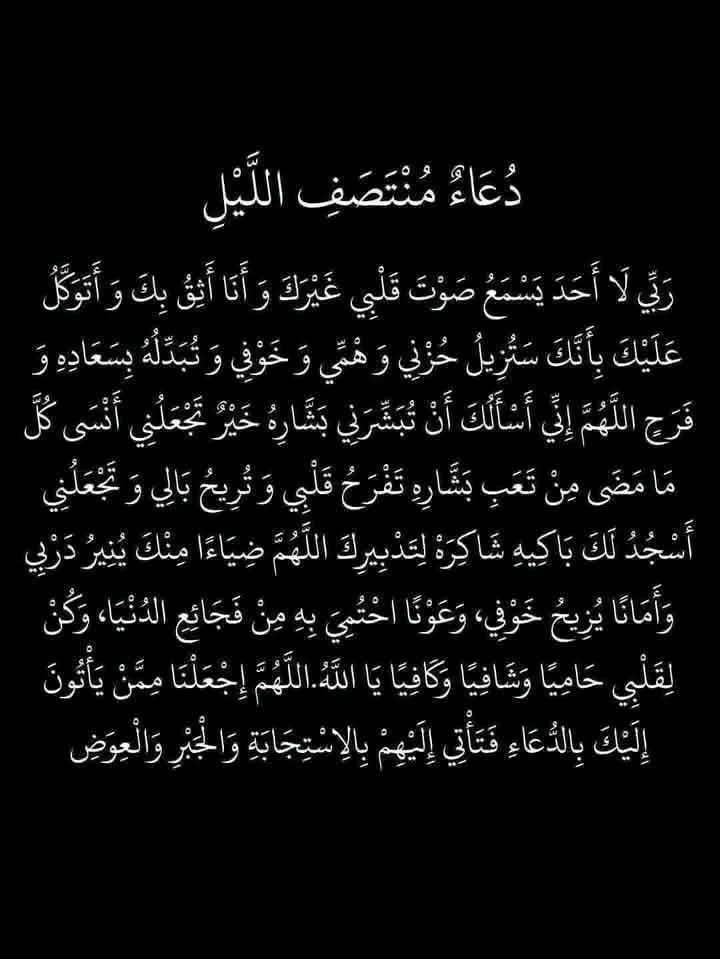 دُعَاءٌ مُنْتَصَفِ اللَّيْلِ
رَبِّي لَا أَحَدَ يَسْمَعُ صَوْتَ قَلْبِي غَيْرَكَ وَ أَنَا أَثِقُ بِكَ وَ أَتَوَكَّلُ
عَلَيْكَ بِأَنَّكَ سَتُزِيلُ حُزْنِي وَ هْمِّي وَ خَوْفِي وَ تُبَدِّلُهُ بِسَعَادِهِ وَ
فَرَحٍ اللَّهُمَّ إِنِّي أَسْأَلُكَ أَنْ تُبَشِّرَنِي بَشَّارِهُ خَيْرٌ تَجْعَلُنِي أَنْسَى كُلَّ
مَا مَضَى مِنْ تَعَبِ بَشَّارِهِ تَفْرَحُ قَلْبِي وَ تُرِيحُ بَالِي وَ تَجْعَلُنِي
أَسْجُدُ لَكَ بَاكِيهِ شَاكِرَهْ لِتَدْبِيرِكَ اللَّهُمَّ ضِيَاءًا مِنْكَ يُنِيرُ دَرْبِي
وَأَمَانًا يُزِيحُ خَوْفِي، وَعَوْنًا احْتُمِيَ بِهِ مِنْ فَجَائِعِ الدُنْيَا، وَكُنْ
لِقَلْبِي حَامِيًا وَشَافِيًا وَكَافِيًا يَا اللَّهُ.اللَّهُمَّ إِجْعَلْنَا مِمَّنْ يَأْتُونَ
إِلَيْكَ بِالدُّعَاءِ فَتَأْتِي إِلَيْهِمْ بِالِاسْتِجَابَةِ وَالْجَبْرِ وَالْعِوَضِ